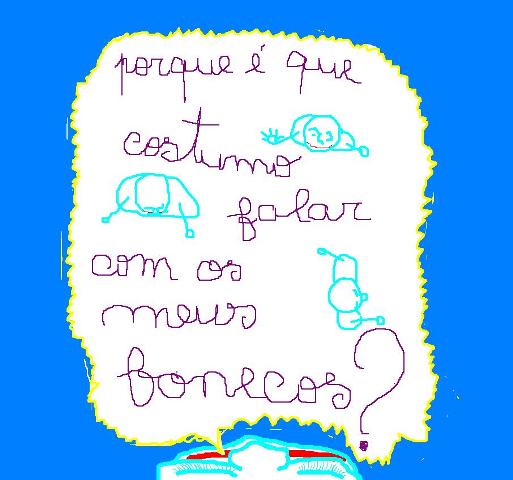 porque é que
costumo
falar
com os
meus
bonecos?